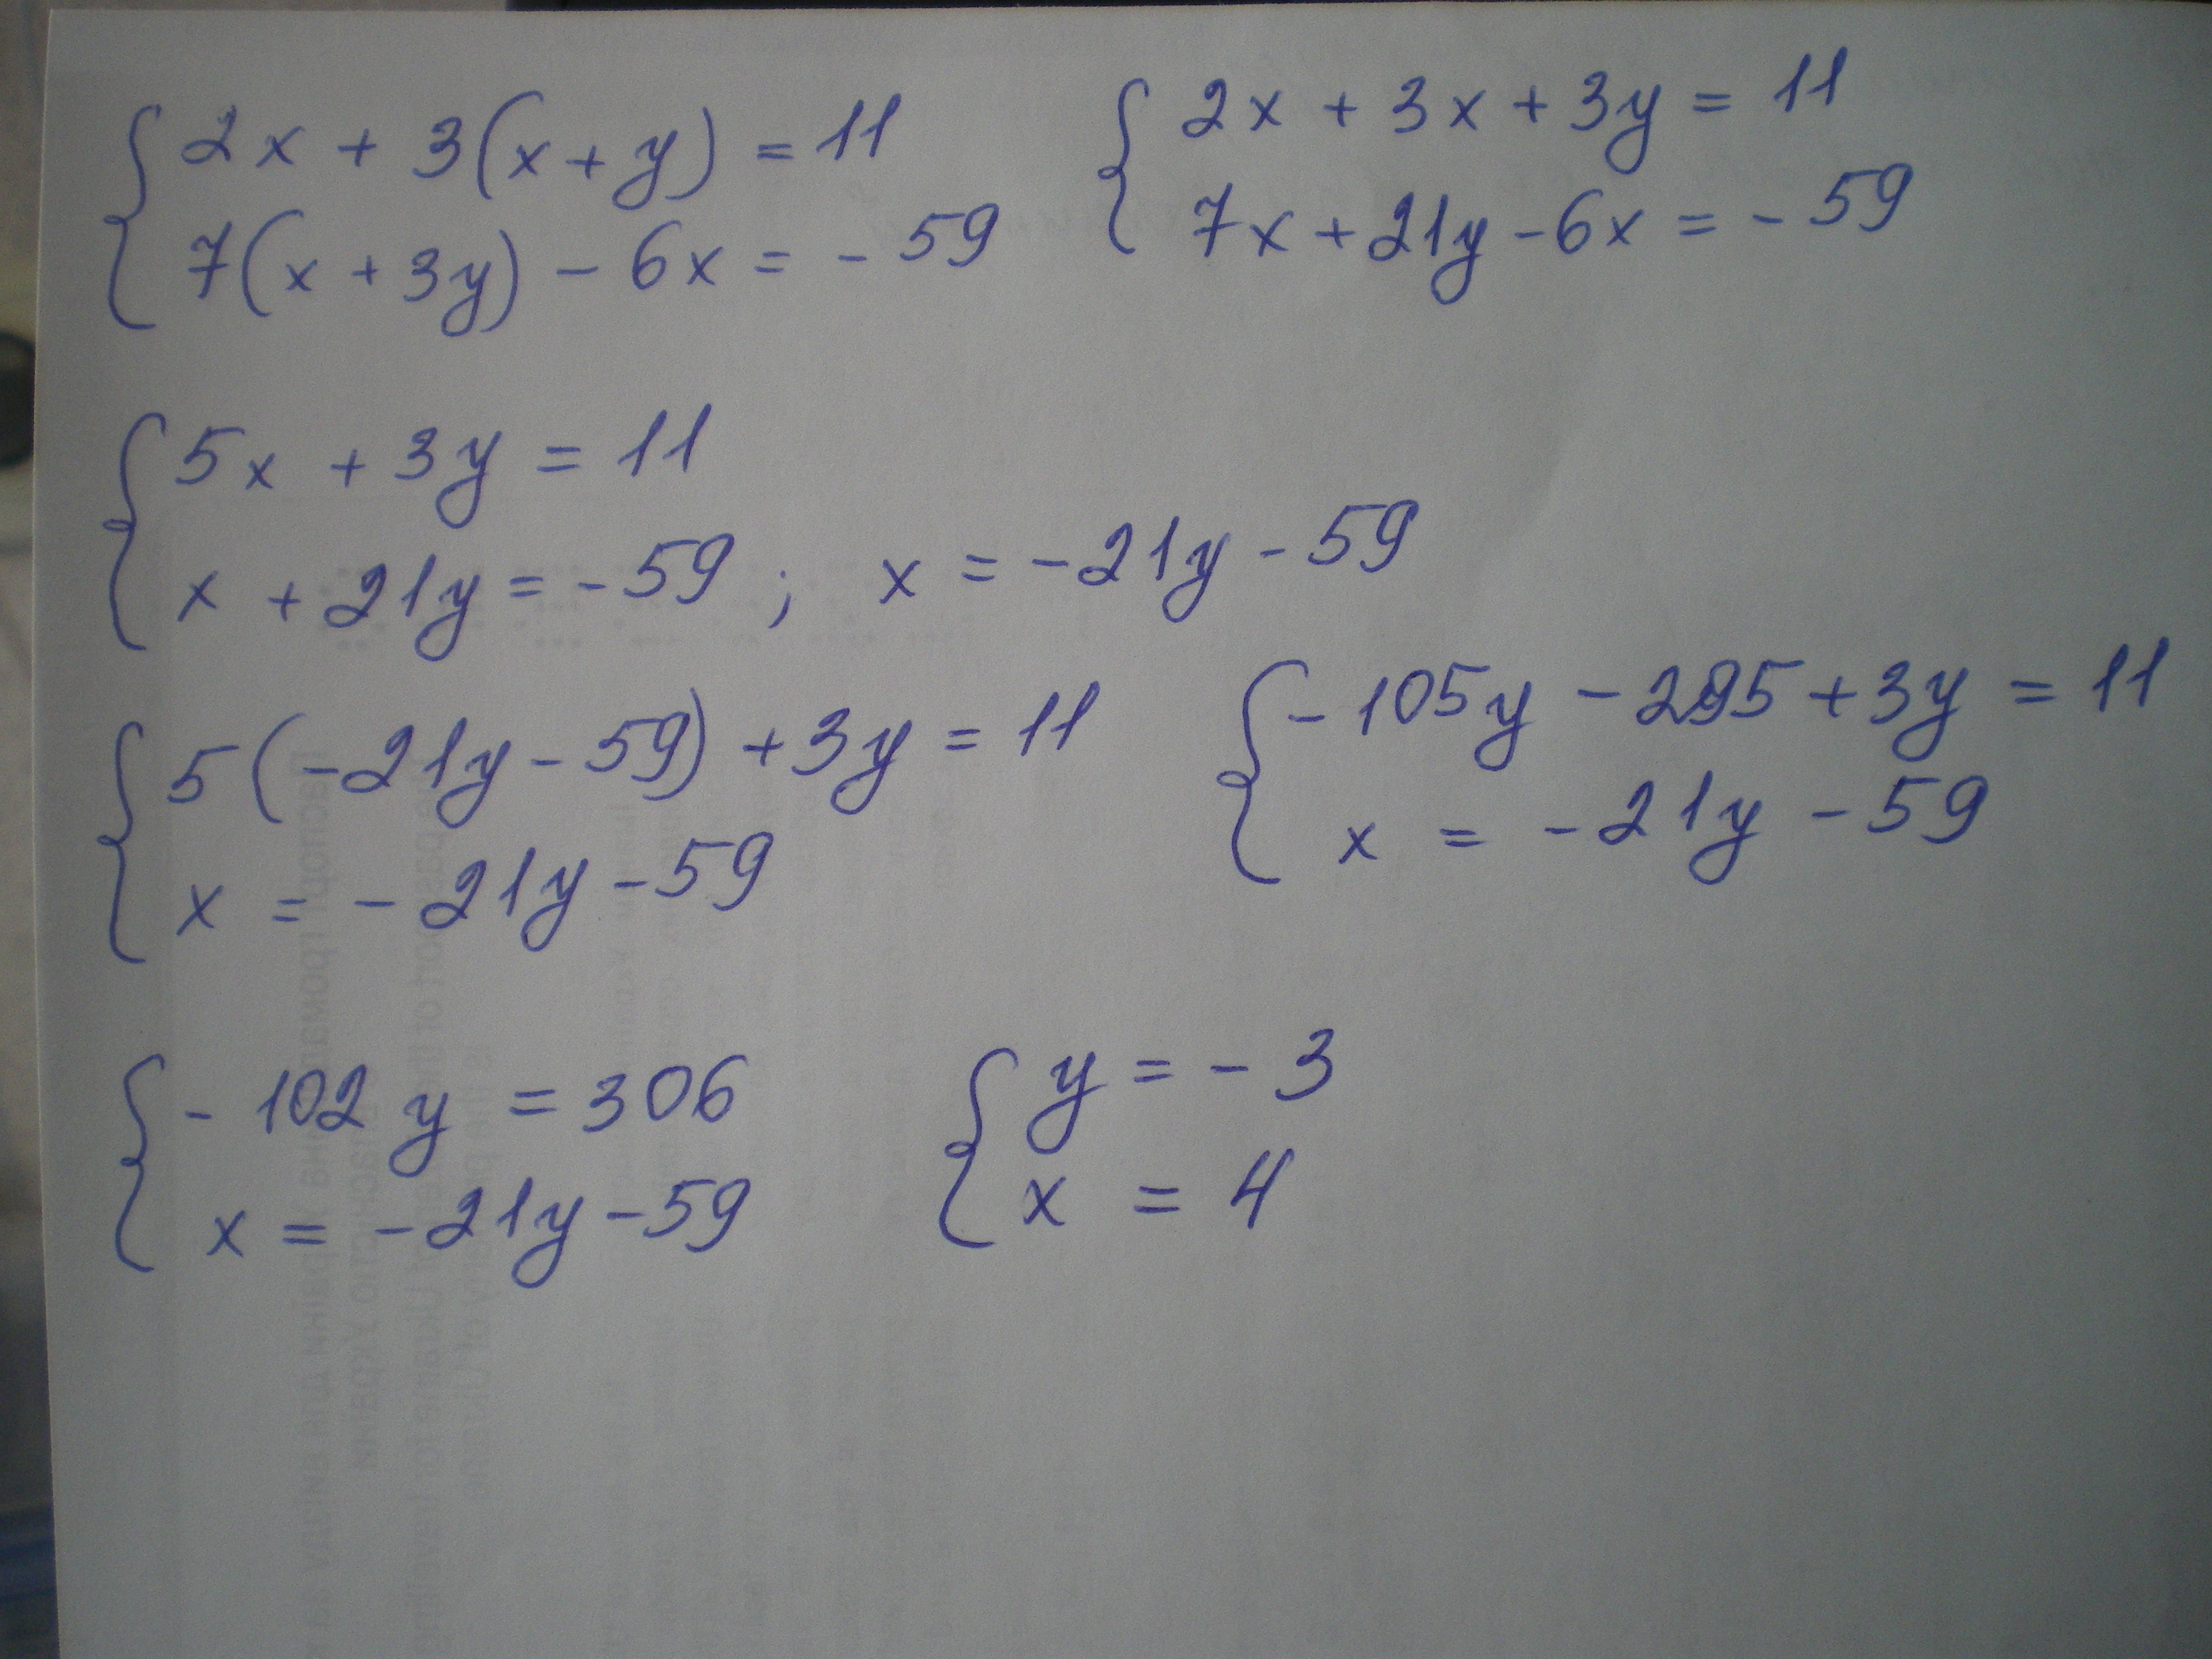 { 2x + 3(x + y) = 11
7(x + 3y) - 6x = - 59
{ 2x + 3x + 3y = 11
7x + 21y - 6x = - 59
{ 5x + 3y = 11
x + 21y = - 59 ; x = - 21y - 59
{ 5(- 21y - 59) + 3y = 11
x = - 21y - 59
{ - 105y - 295 + 3y = 11
x = - 21y - 59
{ - 102y = 306
x = - 21y - 59
{ y = - 3
x = 4